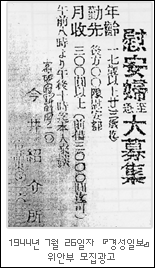 慰安婦至急大募集
年齢 一七歳以上廿三歳迄
勤先 後方〇〇隊慰安部
月収 三〇〇圓以上(前借三〇〇〇圓迄可)
午前八時より午後十時迄本人来談
今井紹介所
1944년 7월 26일자 『경성일보』
위안부 모집광고